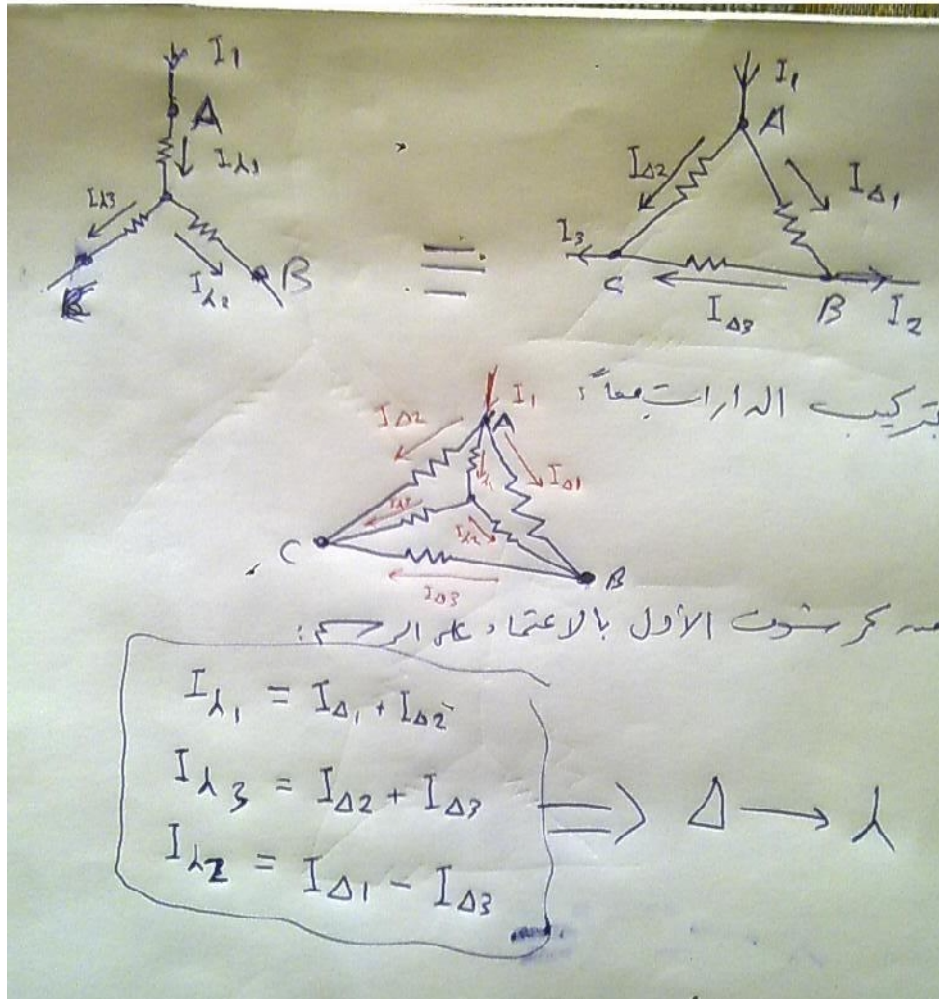 I₁
A
I⅄₁
I⅄₃
I⅄₂
B
≡
I₁
A
I∆₂
I∆₁
I₃
C
I∆₃
B
I₂
بتركيب الدارات معاً:
I₁
I∆₂
A
I∆₁
I⅄₃
I⅄₂
C
I∆₃
B
كرشوف الأول بالاعتماد على الرسم:
I⅄₁ = I∆₁ + I∆₂
I⅄₃ = I∆₂ + I∆₃ ⇒ ∆ → ⅄
I⅄₂ = I∆₁ - I∆₃